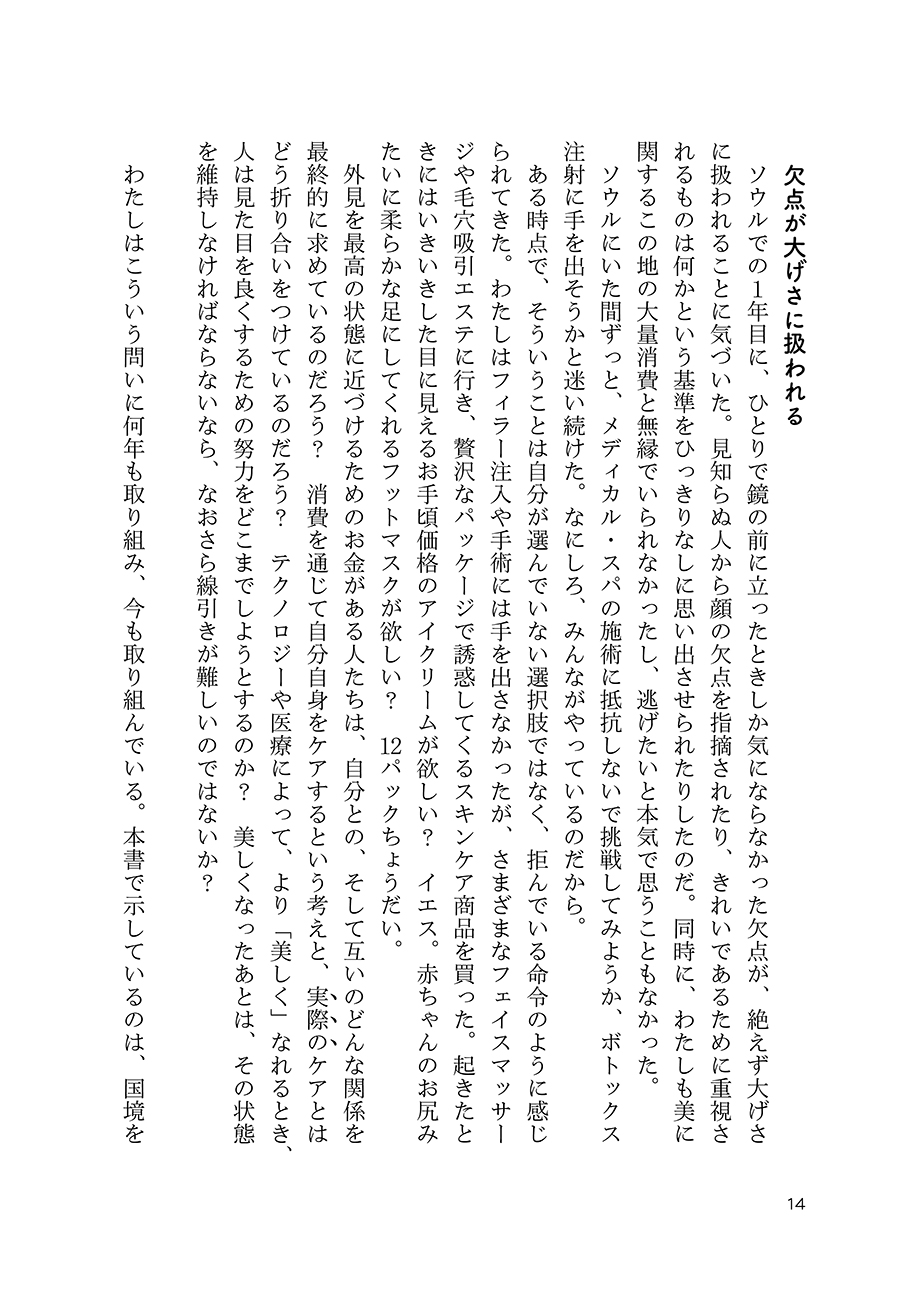 欠点が大げさに扱われる
ソウルでの1年目に、ひとりで鏡の前に立ったときしか気にならなかった欠点が、絶えず大げさ
に扱われることに気づいた。見知らぬ人から顔の欠点を指摘されたり、きれいであるために重視さ
れるものは何かという基準をひっきりなしに思い出させられたりしたのだ。同時に、わたしも美に
関するこの地の大量消費と無縁でいられなかったし、逃げたいと本気で思うこともなかった。
ソウルにいた間ずっと、メディカル・スパの施術に抵抗しないで挑戦してみようか、ボトックス
注射に手を出そうかと迷い続けた。なにしろ、みんながやっているのだから。
ある時点で、そういうことは自分が選んでいない選択肢ではなく、拒んでいる命令のように感じ
られてきた。わたしはフィラー注入や手術には手を出さなかったが、さまざまなフェイスマッサー
ジや毛穴吸引エステに行き、贅沢なパッケージで誘惑してくるスキンケア商品を買った。起きたと
きにはいきいきした目に見えるお手頃価格のアイクリームが欲しい？　イエス。赤ちゃんのお尻み
たいに柔らかな足にしてくれるフットマスクが欲しい？　12パックちょうだい。
外見を最高の状態に近づけるためのお金がある人たちは、自分との、そして互いのどんな関係を
最終的に求めているのだろう？　消費を通じて自分自身をケアするという考えと、実際のケアとは
どう折り合いをつけているのだろう？　テクノロジーや医療によって、より「美しく」なれるとき、
人は見た目を良くするための努力をどこまでしようとするのか？　美しくなったあとは、その状態
を維持しなければならないなら、なおさら線引きが難しいのではないか？
わたしはこういう問いに何年も取り組み、今も取り組んでいる。本書で示しているのは、国境を
14